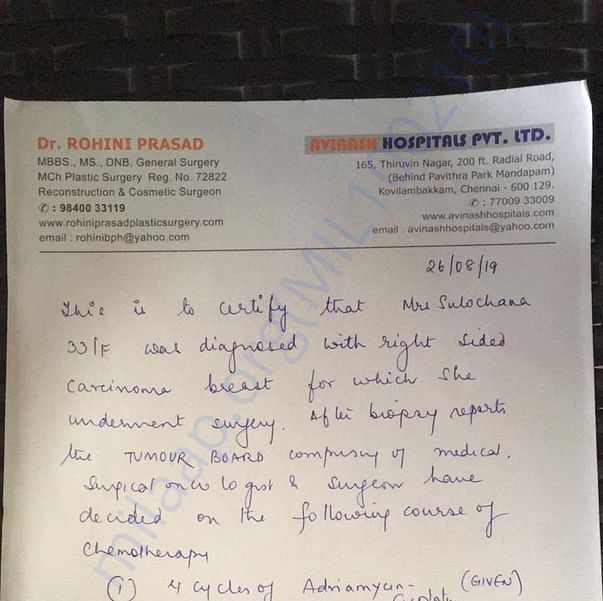 Dr. ROHINI PRASAD
MBBS., MS., DNB, General Surgery
MCh Plastic Surgery Reg. No. 72822
Reconstruction & Cosmetic Surgeon
✆ : 98400 33119
www.rohiniprasadplasticsurgery.com
email : rohinibph@yahoo.com
AVINASH HOSPITALS PVT. LTD.
165, Thiruvin Nagar, 200 ft. Radial Road,
(Behind Pavithra Park Mandapam)
Kovilambakkam, Chennai - 600 129.
✆ : 77009 33009
www.avinashhospitals.com
email : avinashhospitals@yahoo.com
26/08/19
This is to certify that Mrs Sulochana
33/F was diagnosed with right sided
Carcinoma breast for which she
underwent surgery. After biopsy reports
the TUMOUR BOARD comprising of medical,
Surgical oncologist & Surgeon have
decided on the following course of
Chemotherapy
(1) 4 cycles of Adriamycin- (GIVEN)